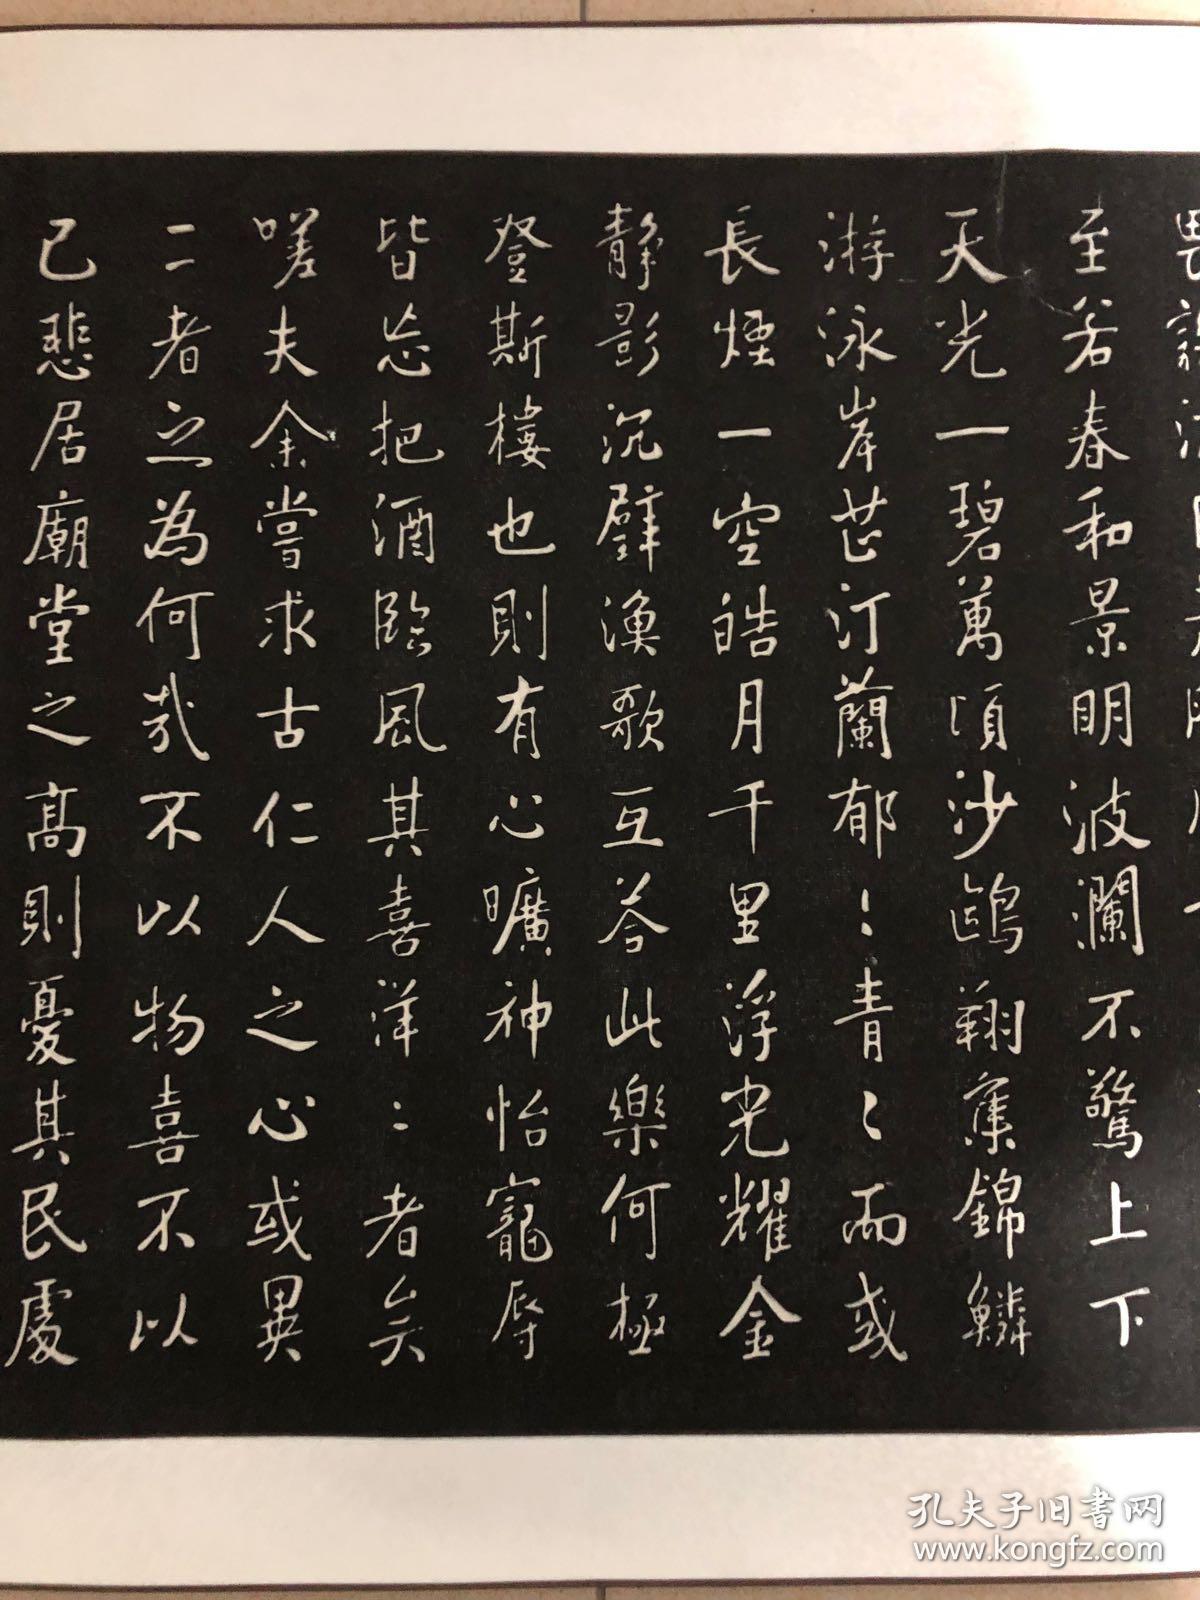 畏譏
至若春和景明波瀾不驚上下
天光一碧萬頃沙鷗翔集錦鱗
游泳岸芷汀蘭郁〻青〻而或
長煙一空皓月千里浮光耀金
靜影沉璧漁歌互荅此樂何極
登斯樓也則有心曠神怡寵辱
皆忘把酒臨風其喜洋〻者矣
嗟夫余嘗求古仁人之心或異
二者之為何哉不以物喜不以
已悲居廟堂之髙則憂其民處
孔夫子旧书网
www.kongfz.com